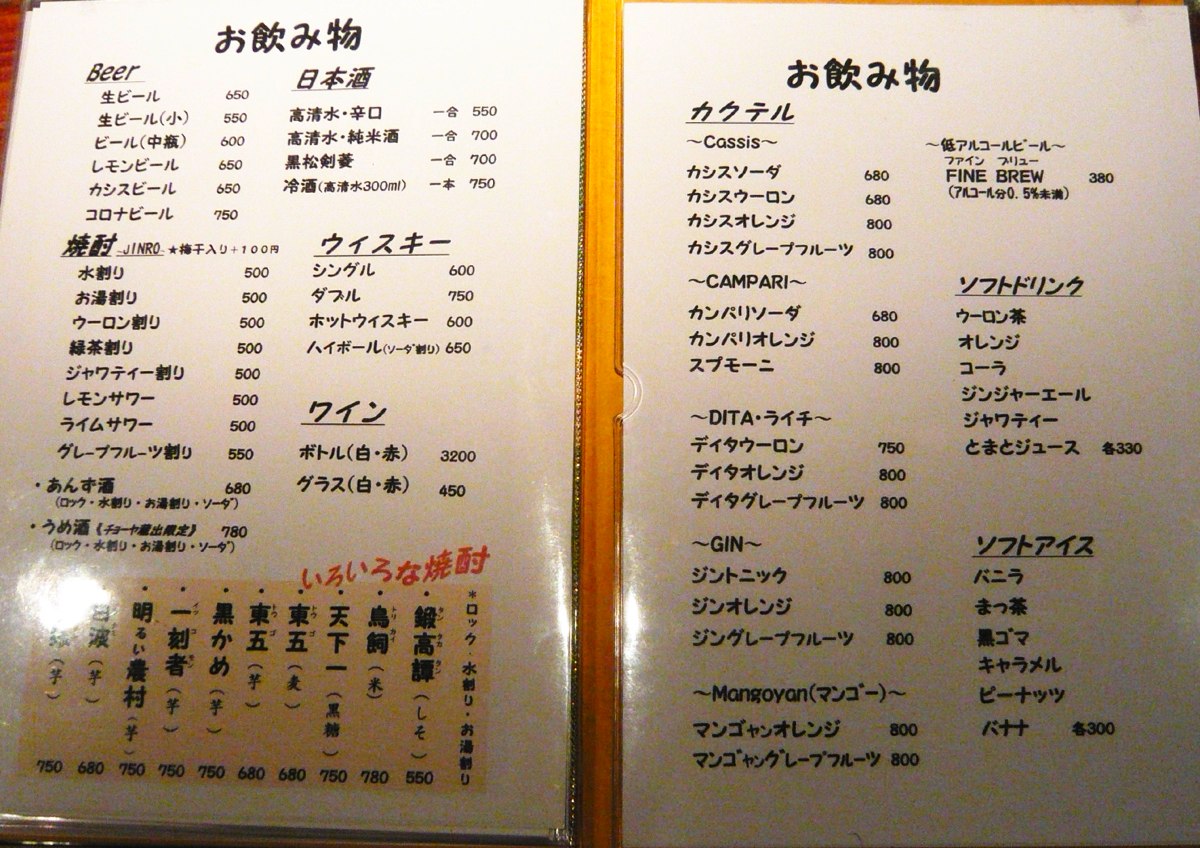 お飲み物
Beer
生ビール 650
生ビール(小) 550
ビール(中瓶) 600
レモンビール 650
カシスビール 650
コロナビール 750
日本酒
高清水・辛口 一合 550
高清水・純米酒 一合 700
黒松剣菱 一合 700
冷酒(高清水300ml) 一本 750
焼酎 -JINRO- ★梅干入り+100円
水割り 500
お湯割り 500
ウーロン割り 500
緑茶割り 500
ジャワティー割り 500
レモンサワー 500
ライムサワー 500
グレープフルーツ割り 550
・あんず酒 680
(ロック・水割り・お湯割り・ソーダ)
・うめ酒《チョーヤ蔵出限定》 780
(ロック・水割り・お湯割り・ソーダ)
ウィスキー
シングル 600
ダブル 750
ホットウィスキー 600
ハイボール(ソーダ割り) 650
ワイン
ボトル(白・赤) 3200
グラス(白・赤) 450
いろいろな焼酎
*ロック・水割り・お湯割り
・鍛高譚(しそ) タンタカタン 550
・鳥飼(米) トリカイ 780
・天下一(黒糖) 750
・東五(麦) トウゴ 680
・東五(芋) トウゴ 680
・黒かめ(芋) 750
・一刻者(芋) イッコモン 750
・明るい農村(芋) 750
波(芋) 680
(芋) 750
お飲み物
カクテル
~Cassis~
カシスソーダ 680
カシスウーロン 680
カシスオレンジ 800
カシスグレープフルーツ 800
~CAMPARI~
カンパリソーダ 680
カンパリオレンジ 800
スプモーニ 800
~DITA・ライチ~
デイタウーロン 750
デイタオレンジ 800
デイタグレープフルーツ 800
~GIN~
ジントニック 800
ジンオレンジ 800
ジングレープフルーツ 800
~Mangoyan(マンゴー)~
マンゴャンオレンジ 800
マンゴャングレープフルーツ 800
~低アルコールビール~
ファイン ブリュー
FINE BREW 380
(アルコール分0.5%未満)
ソフトドリンク
ウーロン茶
オレンジ
コーラ
ジンジャーエール
ジャワティー
とまとジュース 各330
ソフトアイス
バニラ
まっ茶
黒ゴマ
キャラメル
ピーナッツ
バナナ 各300